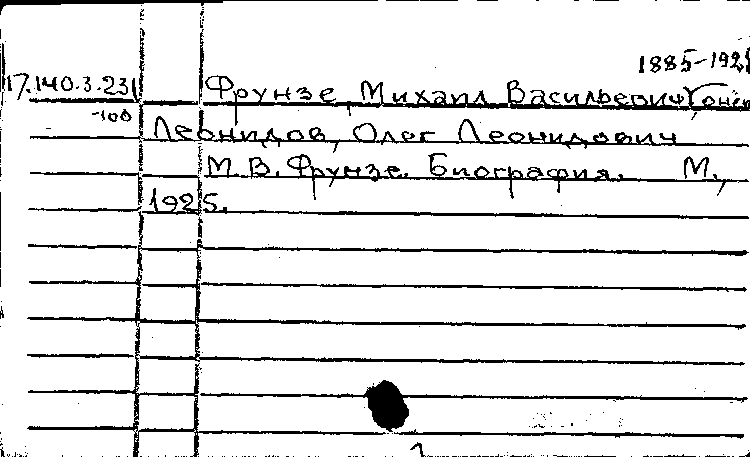 1885-192
17.140.3.231 Фрунзе, Михаил Васильевич
-100 Леонидов, Олег Леонидович
М.В. Фрунзе. Биография. М.,
1925.